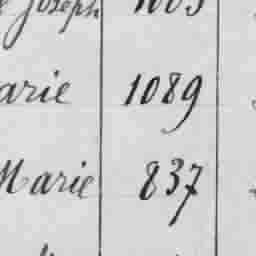 Joseph
arie 1089
Marie 837